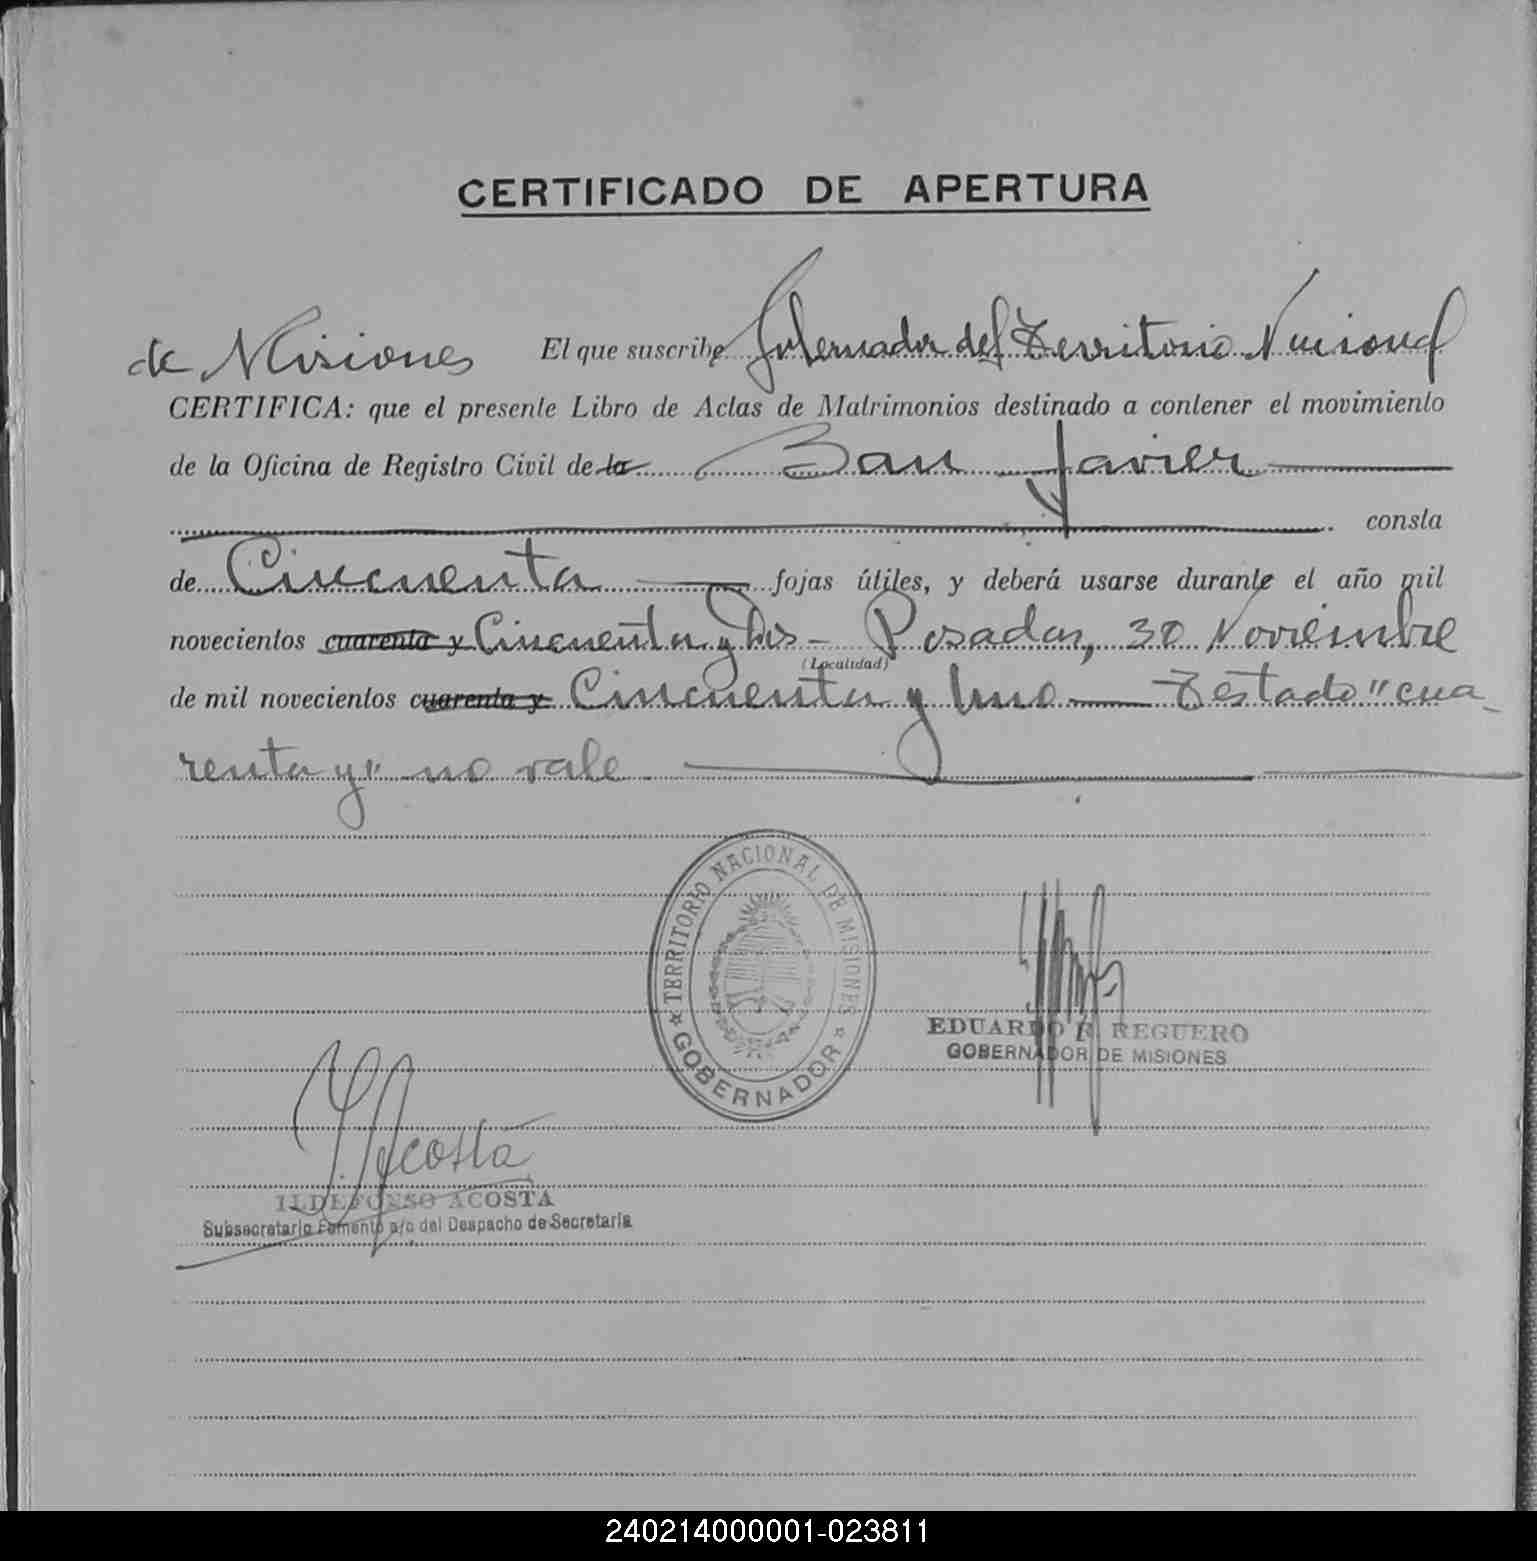 CERTIFICADO DE APERTURA
El que suscribe Gobernador del Territorio Nacional
de Misiones
CERTIFICA: que el presente Libro de Actas de Matrimonios destinado a contener el movimiento
de la Oficina de Registro Civil de la San Javier
consta
de Cincuenta fojas útiles, y deberá usarse durante el año mil
novecientos cuarenta y Cincuenta y dos - Posadas, 30 Noviembre
(Localidad)
de mil novecientos cuarenta y Cincuenta y Uno Testado "cua-
renta y" no vale
TERRITORIO NACIONAL DE MISIONES
GOBERNADOR
EDUARDO REGUERO
GOBERNADOR DE MISIONES
I. Acosta
ILDEFONSO ACOSTA
Subsecretario Fomento a/c del Despacho de Secretaría
240214000001-023811